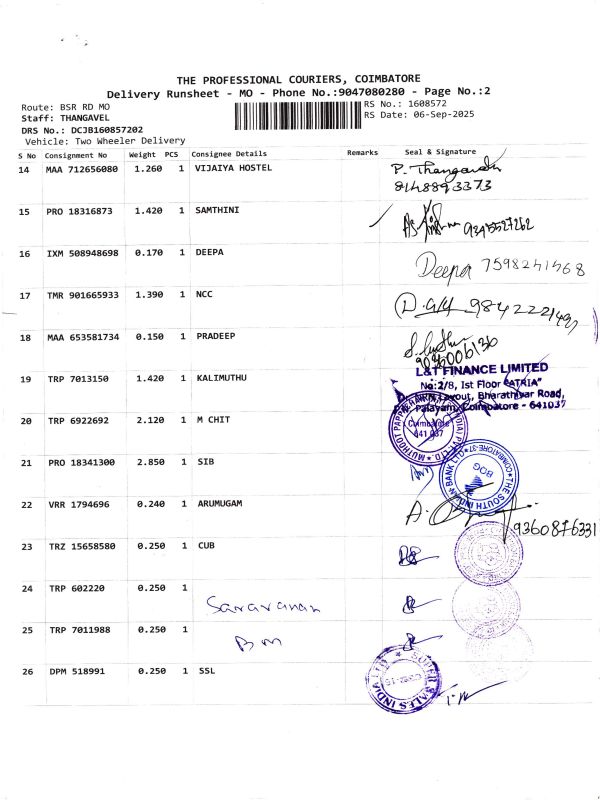 THE PROFESSIONAL COURIERS, COIMBATORE
Delivery Runsheet - MO - Phone No.:9047080280 - Page No.:2
Route: BSR RD MO
RS No.: 1608572
Staff: THANGAVEL
RS Date: 06-Sep-2025
DRS No.: DCJB160857202
Vehicle: Two Wheeler Delivery
S No Consignment No Weight PCS Consignee Details Remarks Seal & Signature
14 MAA 712656080 1.260 1 VIJAIYA HOSTEL
8148893373
15 PRO 18316873 1.420 1 SAMTHINI
16 IXM 508948698 0.170 1 DEEPA Deepa 7598241568
17 TMR 901665933 1.390 1 NCC
18 MAA 653581734 0.150 1 PRADEEP
L&T FINANCE LIMITED
19 TRP 7013150 1.420 1 KALIMUTHU No:2/8, Ist Floor "ATRIA"
Layout, Bharathiyar Road,
Palayam, Coimbatore - 641037
20 TRP 6922692 2.120 1 M CHIT
Coimbatore
641 037
21 PRO 18341300 2.850 1 SIB
THE SOUTH INDIAN BANK LTD COIMBATORE-37
BOG
22 VRR 1794696 0.240 1 ARUMUGAM
9360876331
23 TRZ 15658580 0.250 1 CUB
24 TRP 602220 0.250 1
Saravanan
25 TRP 7011988 0.250 1
Bm
26 DPM 518991 0.250 1 SSL
SUPER SALES INDIA LTD